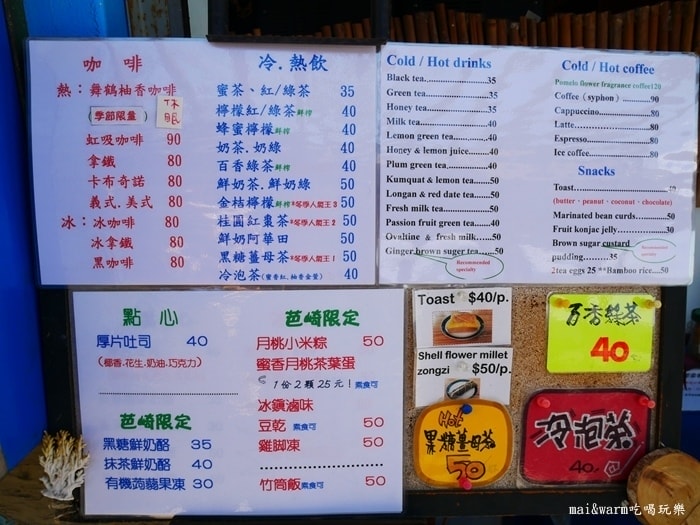 咖啡
熱：舞鶴柚香咖啡
(季節限量) 休眠
虹吸咖啡 90
拿鐵 80
卡布奇諾 80
義式.美式 80
冰：冰咖啡 80
冰拿鐵 80
黑咖啡 80
冷.熱飲
蜜茶、紅/綠茶 35
檸檬紅/綠茶鮮榨 40
蜂蜜檸檬鮮榨 40
奶茶.奶綠 40
百香綠茶鮮榨 40
鮮奶茶.鮮奶綠 50
金桔檸檬鮮榨 50
桂圓紅棗茶 50
鮮奶阿華田 50
黑糖薑母茶 50
冷泡茶(蜜香紅.柚香金萱) 40
Cold / Hot drinks
Black tea 35
Green tea 35
Honey tea 35
Milk tea 40
Lemon green tea 40
Honey & lemon juice 40
Plum green tea 40
Kumquat & lemon tea 50
Longan & red date tea 50
Fresh milk tea 50
Passion fruit green tea 40
Ovaltine & fresh milk 50
Ginger brown suger tea 50
Recommended specialty
Cold / Hot coffee
Pomelo flower fragrance coffee120
Coffee (syphon) 90
Cappuccino 80
Latte 80
Espresso 80
Ice coffee 80
Snacks
Toast 40
(butter · peanut · coconut · chocolate)
Marinated bean curds 50
Fruit konjac jelly 30
Brown sugar custard
pudding 35
Recommended specialty
2tea eggs 25 **Bamboo rice 50
點心
厚片吐司 40
(椰香.花生.奶油.巧克力)
芭崎限定
黑糖鮮奶酪 35
抹茶鮮奶酪 40
有機蒟蒻果凍 30
芭崎限定
月桃小米粽 50
蜜香月桃茶葉蛋
1份2顆25元！素食可
冰鎮滷味
豆乾 素食可 50
雞腳凍 50
竹筒飯素食可 50
Toast $40/p.
Shell flower millet
zongzi $50/p.
Hot
黑糖薑母茶
50
百香綠茶
40
冷泡茶
40
mai&warm吃喝玩樂